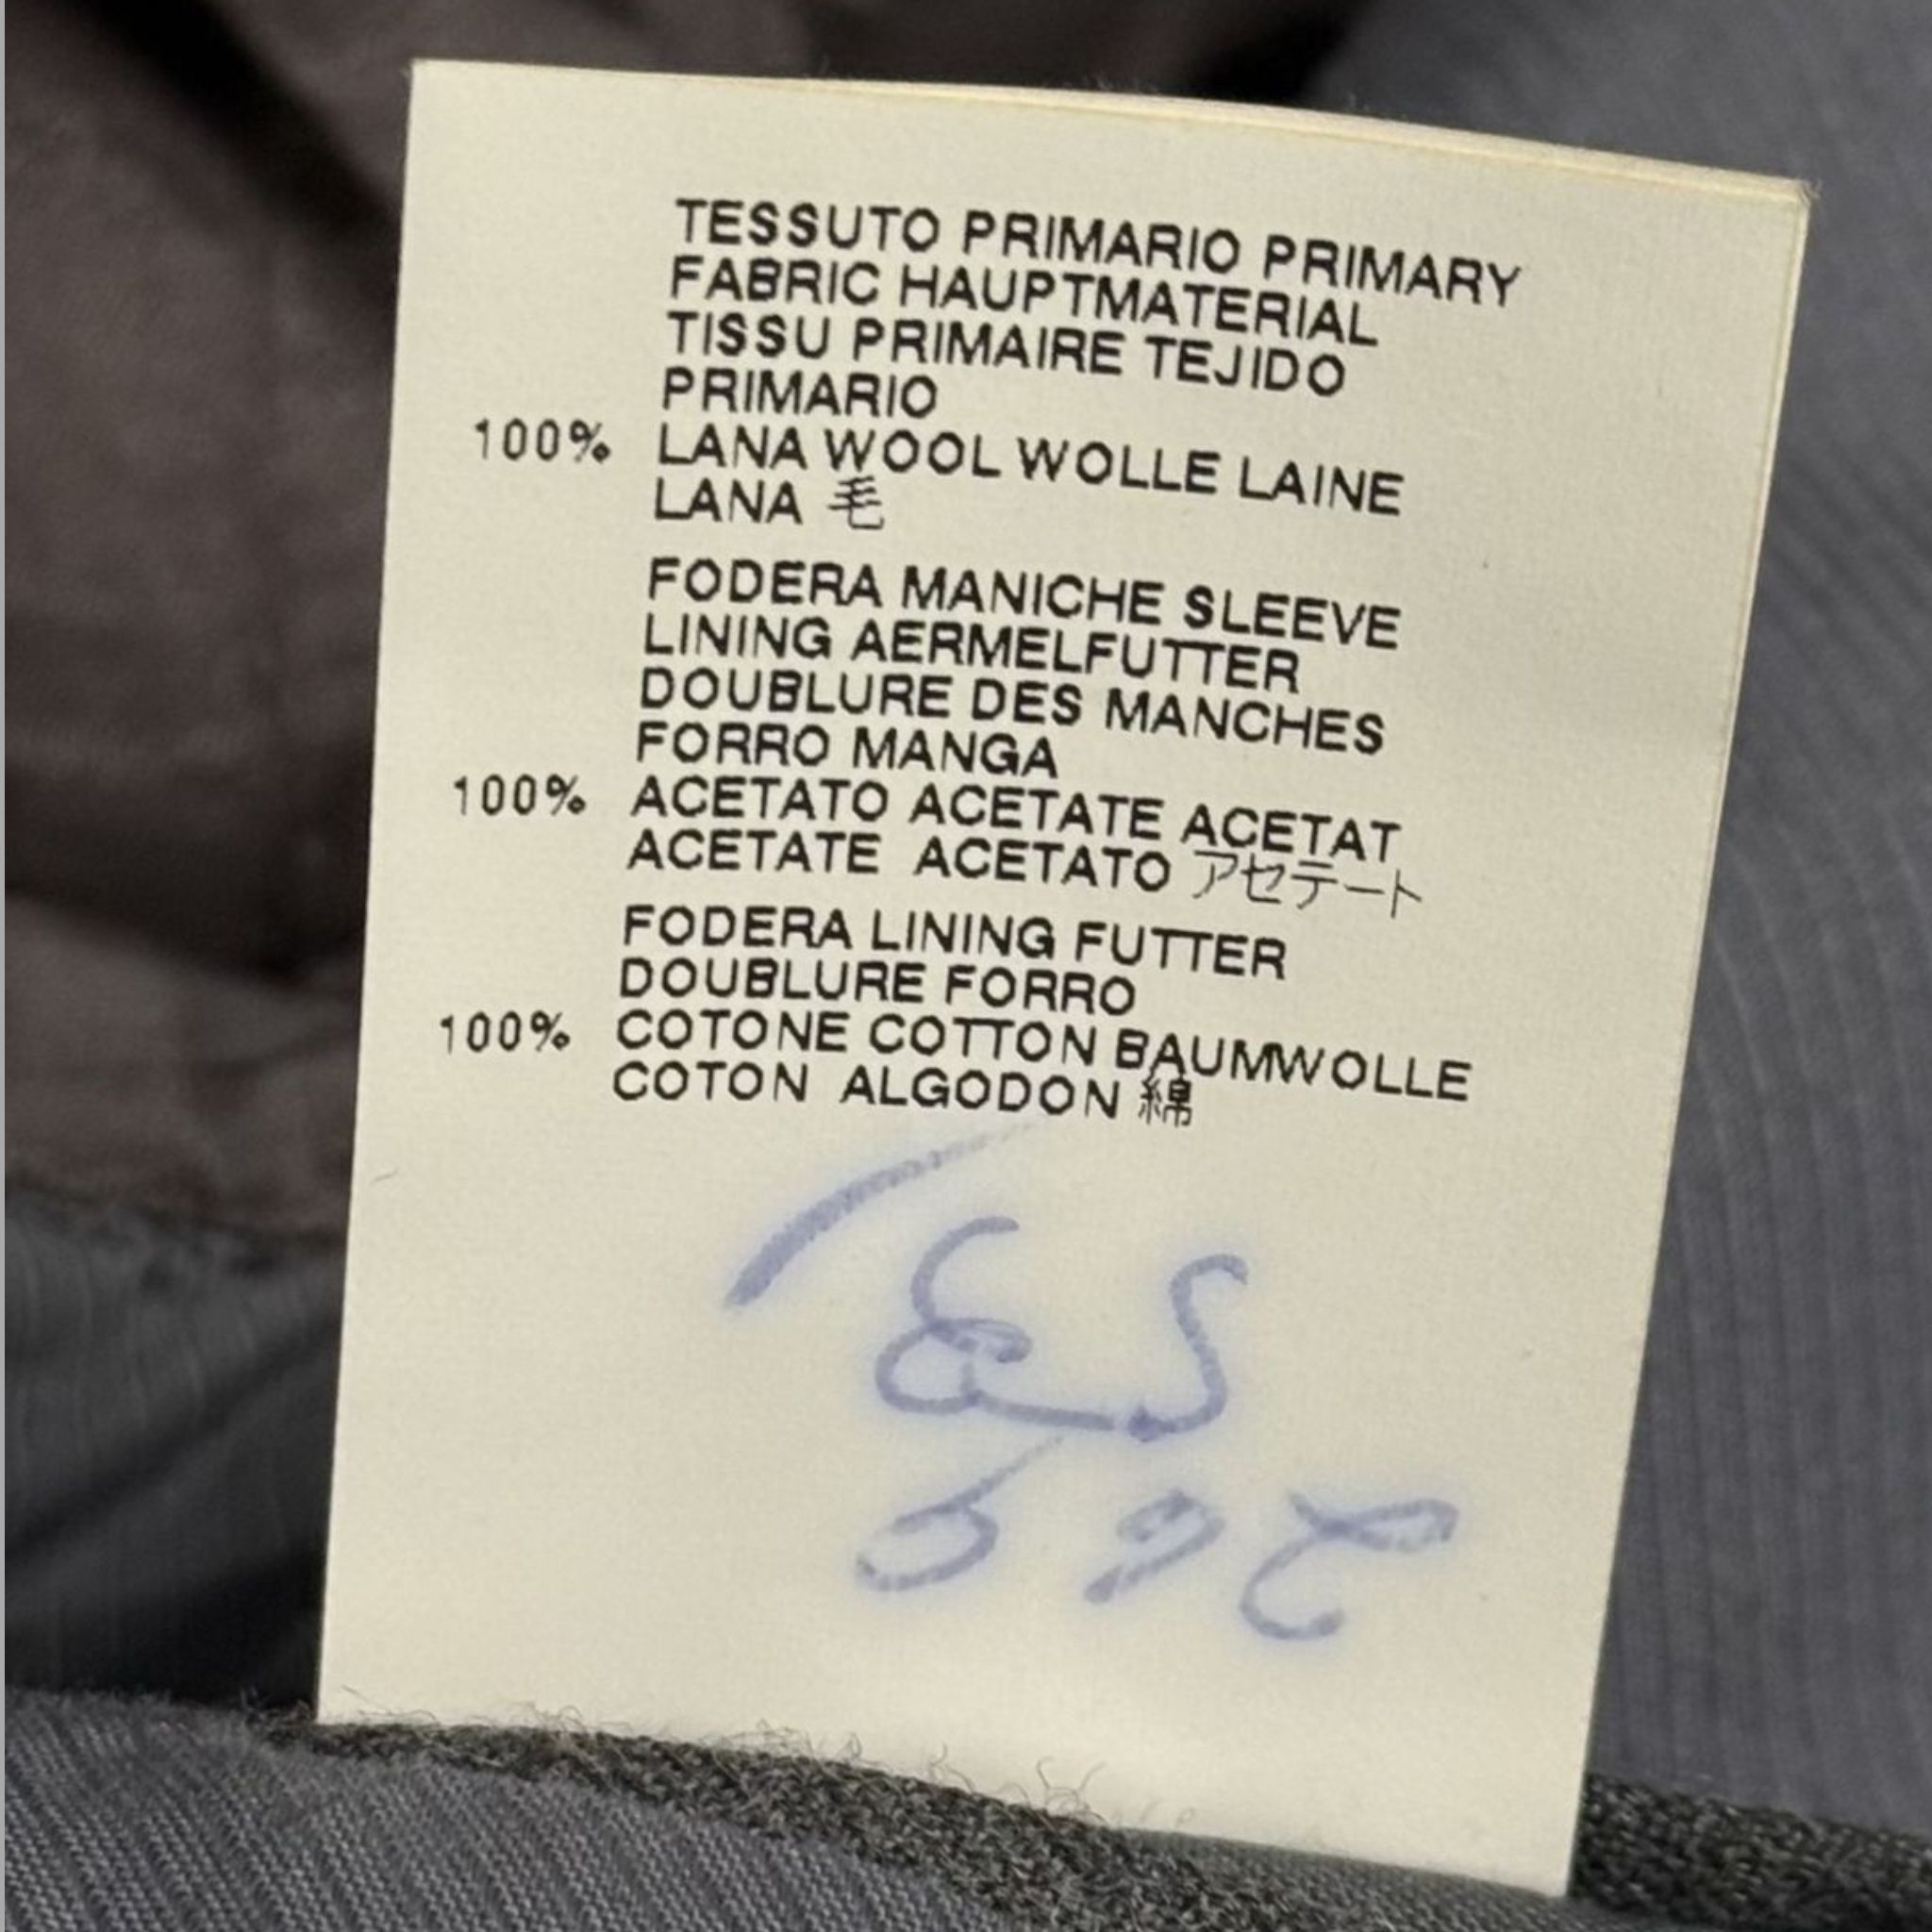 TESSUTO PRIMARIO PRIMARY
FABRIC HAUPTMATERIAL
TISSU PRIMAIRE TEJIDO
PRIMARIO
100% LANA WOOL WOLLE LAINE
LANA 毛
FODERA MANICHE SLEEVE
LINING AERMELFUTTER
DOUBLURE DES MANCHES
FORRO MANGA
100% ACETATO ACETATE ACETAT
ACETATE ACETATO アセテート
FODERA LINING FUTTER
DOUBLURE FORRO
100% COTONE COTTON BAUMWOLLE
COTON ALGODON 綿